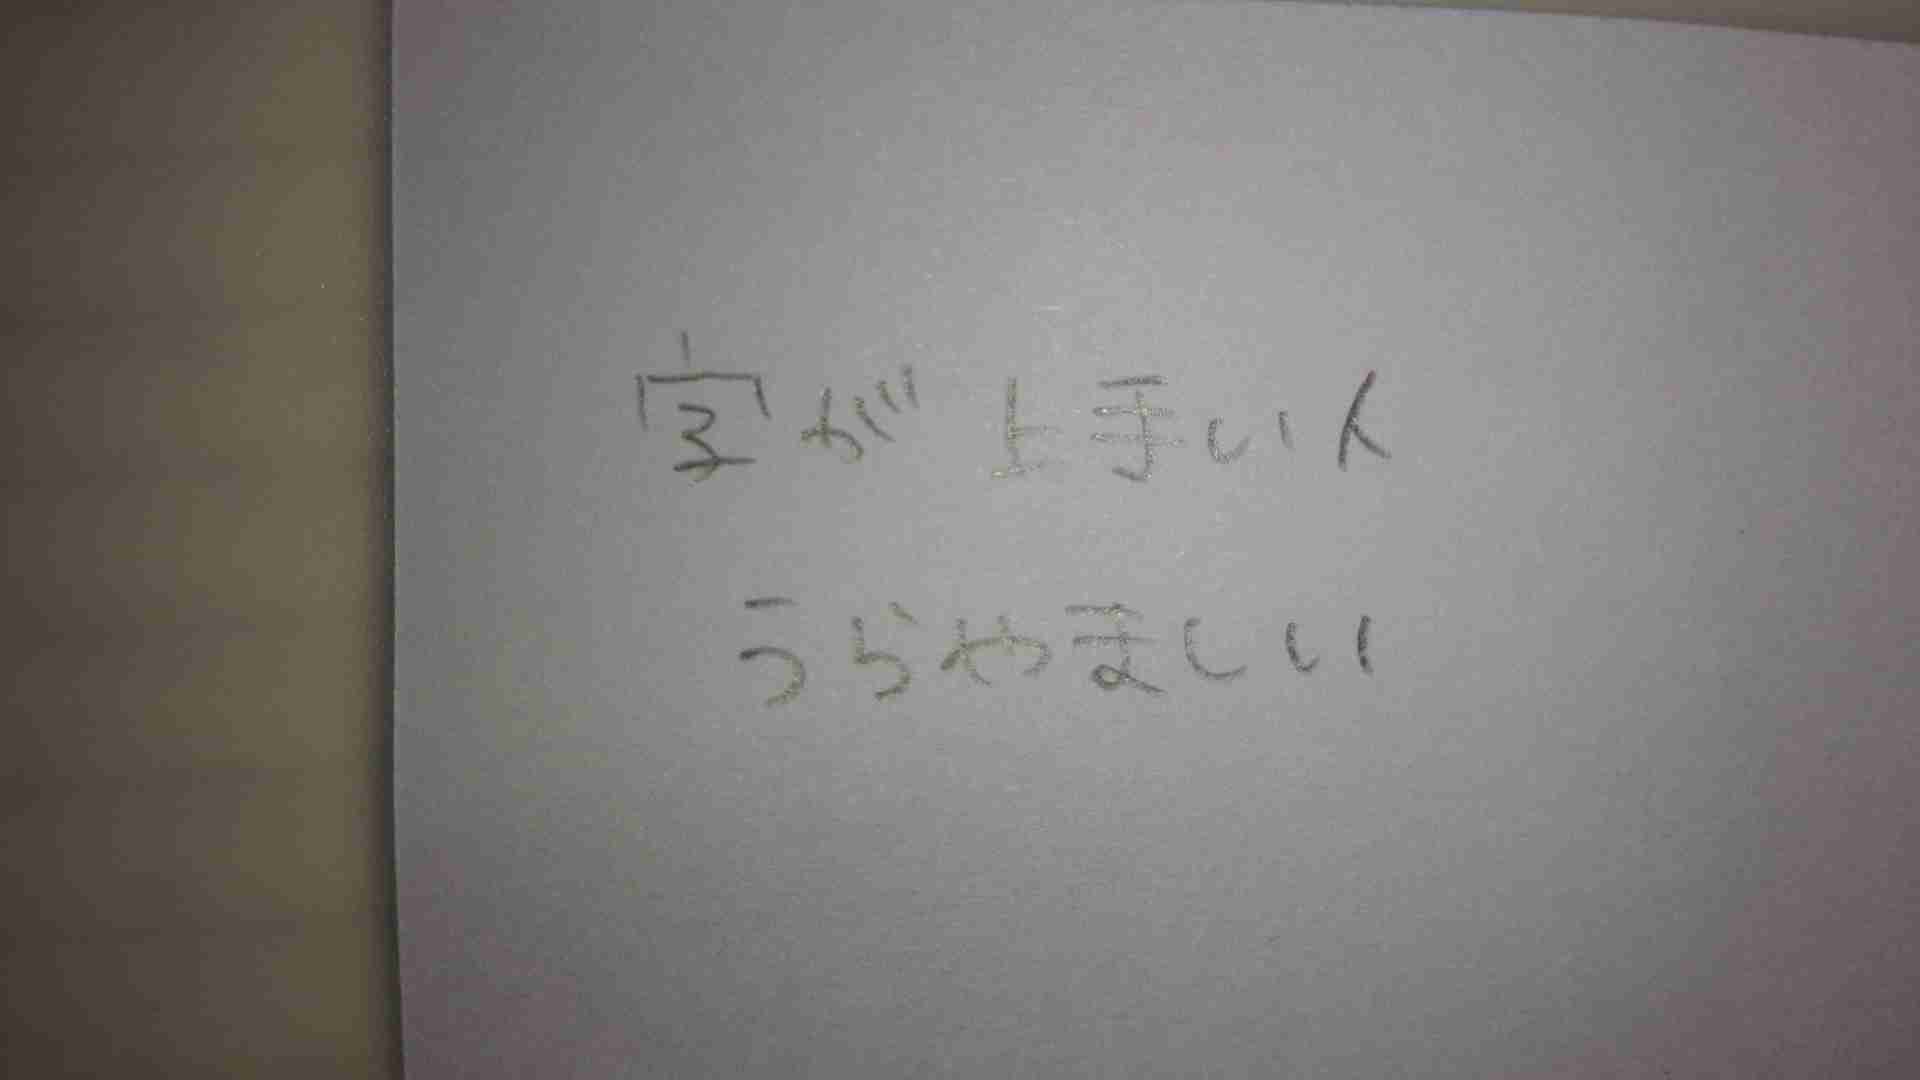 字が上手い人
うらやましい